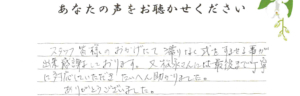 あなたの声をお聴かせください
スタッフ皆様のおかげにて滞りなく式をすませる事が
出来感謝しております。又 さんには最後まで丁寧
に対応していただき たいへん助かりました。
ありがとうございました。